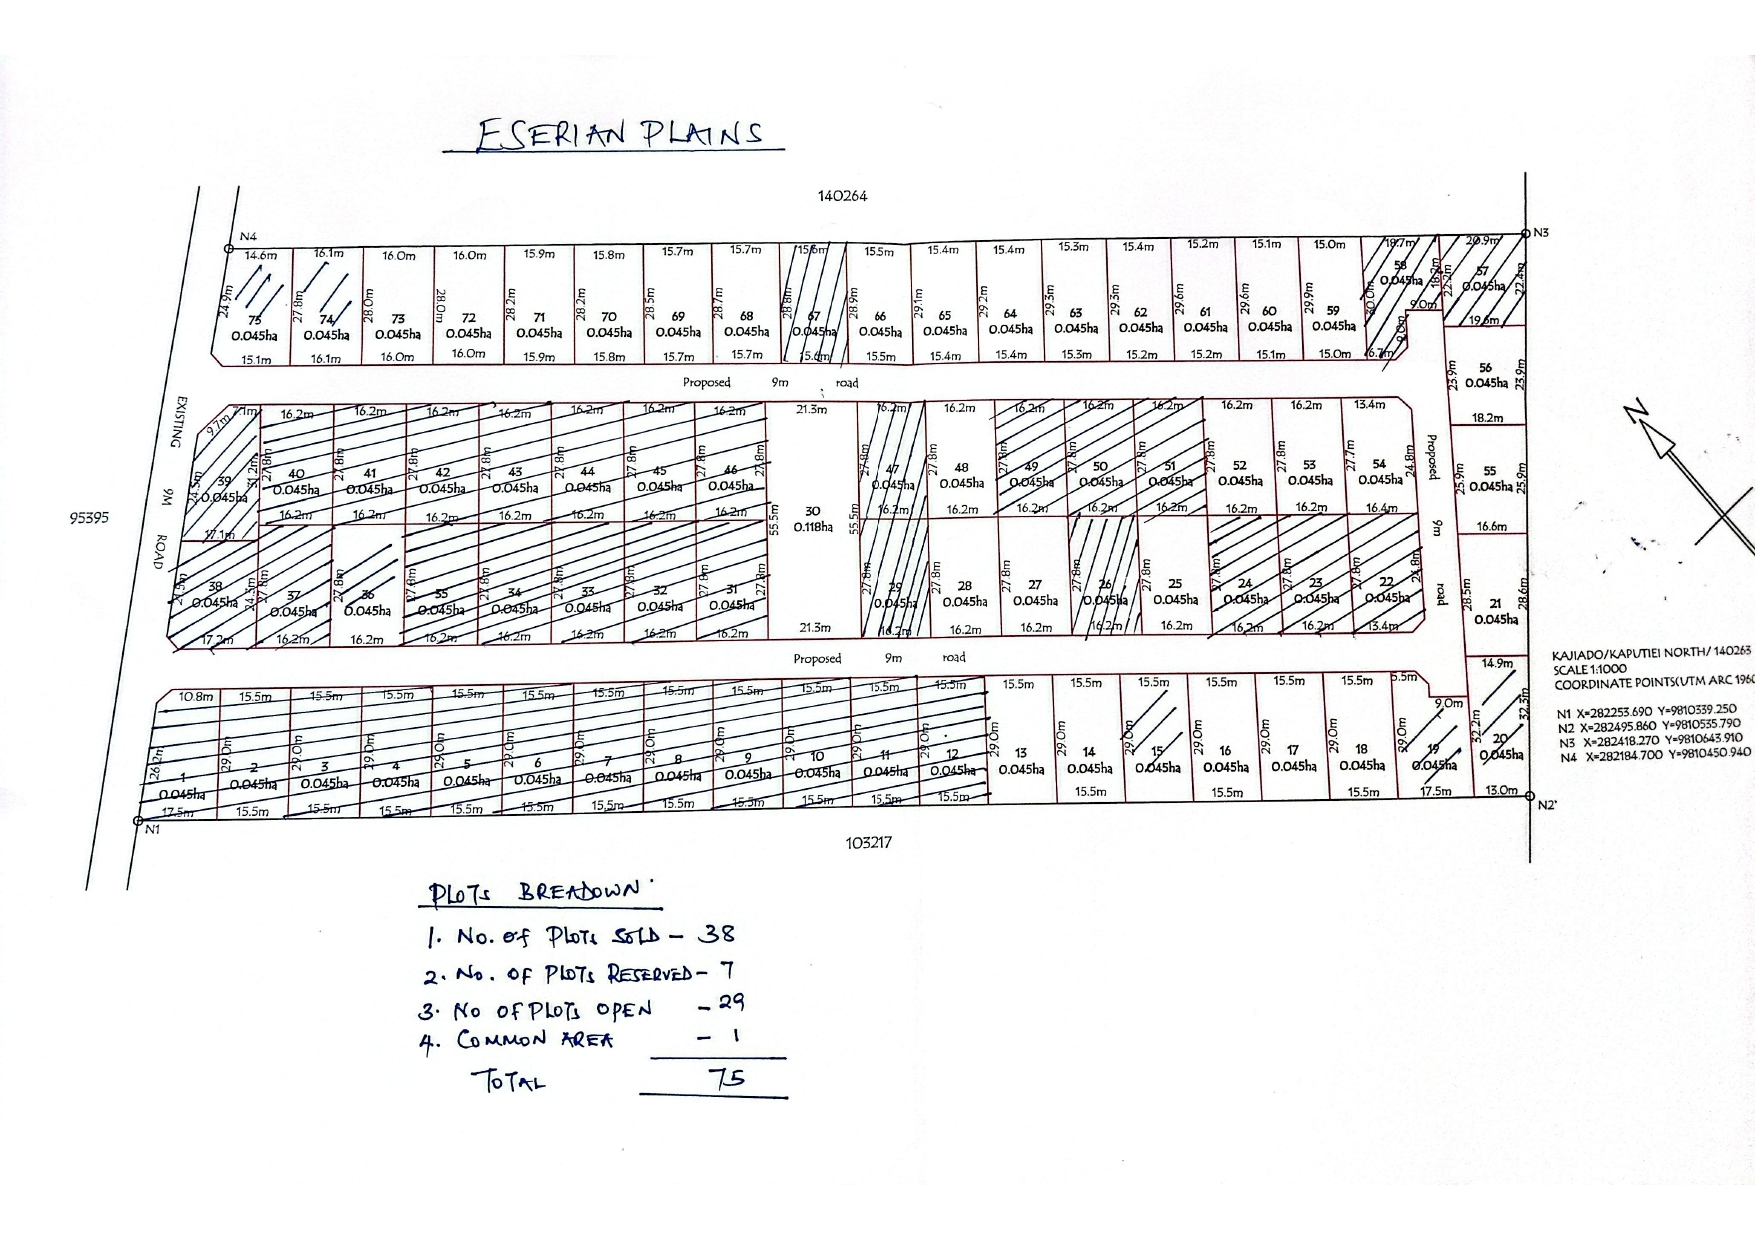 ESERIAN PLAINS
140264
N4
N3
14.6m 16.1m 16.0m 16.0m 15.9m 15.8m 15.7m 15.7m 15.6m 15.5m 15.4m 15.4m 15.3m 15.4m 15.2m 15.1m 15.0m 18.7m 20.9m
24.9m 27.8m 28.0m 28.0m 28.2m 28.2m 28.5m 28.7m 28.8m 28.9m 29.1m 29.2m 29.3m 29.3m 29.6m 29.6m 29.9m 30.0m 18.2m 22.2m 22.4m
75 74 73 72 71 70 69 68 67 66 65 64 63 62 61 60 59 58 57
0.045ha 0.045ha 0.045ha 0.045ha 0.045ha 0.045ha 0.045ha 0.045ha 0.045ha 0.045ha 0.045ha 0.045ha 0.045ha 0.045ha 0.045ha 0.045ha 0.045ha 0.045ha 0.045ha
9.0m 9.0m 19.6m
15.1m 16.1m 16.0m 16.0m 15.9m 15.8m 15.7m 15.7m 15.6m 15.5m 15.4m 15.4m 15.3m 15.2m 15.2m 15.1m 15.0m 6.7m
23.9m 56 23.9m
0.045ha
18.2m
Proposed 9m road
EXISTING 9M ROAD
95395
9.7m 7.1m 16.2m 16.2m 16.2m 16.2m 16.2m 16.2m 16.2m 21.3m 16.2m 16.2m 16.2m 16.2m 16.2m 16.2m 16.2m 13.4m
24.5m 21.2m 27.8m 27.8m 27.8m 27.8m 27.8m 27.8m 27.8m 27.8m 27.8m 27.8m 27.8m 27.8m 27.8m 27.8m 27.8m 27.7m 24.8m
39 40 41 42 43 44 45 46 47 48 49 50 51 52 53 54
0.045ha 0.045ha 0.045ha 0.045ha 0.045ha 0.045ha 0.045ha 0.045ha 0.045ha 0.045ha 0.045ha 0.045ha 0.045ha 0.045ha 0.045ha 0.045ha
17.1m 16.2m 16.2m 16.2m 16.2m 16.2m 16.2m 16.2m 16.2m 16.2m 16.2m 16.2m 16.2m 16.2m 16.2m 16.4m
55.5m 30 55.5m
0.118ha
Proposed 9m road
25.9m 55 25.9m
0.045ha
16.6m
N
27.8m 27.8m 27.8m 27.8m 27.8m 27.8m 27.8m 27.8m 27.8m 27.8m 27.8m 27.8m 27.8m 27.8m 27.8m 27.8m
38 37 36 35 34 33 32 31 29 28 27 26 25 24 23 22
0.045ha 0.045ha 0.045ha 0.045ha 0.045ha 0.045ha 0.045ha 0.045ha 0.045ha 0.045ha 0.045ha 0.045ha 0.045ha 0.045ha 0.045ha 0.045ha
17.2m 16.2m 16.2m 16.2m 16.2m 16.2m 16.2m 16.2m 21.3m 16.2m 16.2m 16.2m 16.2m 16.2m 16.2m 16.2m 13.4m
28.5m 21 28.6m
0.045ha
14.9m
Proposed 9m road
KAJIADO/KAPUTIEI NORTH/ 140263
SCALE 1:1000
COORDINATE POINTS(UTM ARC 1960
N1 X=282253.690 Y=9810339.250
N2 X=282495.860 Y=9810535.790
N3 X=282418.270 Y=9810643.910
N4 X=282184.700 Y=9810450.940
10.8m 15.5m 15.5m 15.5m 15.5m 15.5m 15.5m 15.5m 15.5m 15.5m 15.5m 15.5m 15.5m 15.5m 15.5m 15.5m 15.5m 15.5m 5.5m
9.0m
26.2m 29.0m 29.0m 29.0m 29.0m 29.0m 29.0m 29.0m 29.0m 29.0m 29.0m 29.0m 29.0m 29.0m 29.0m 29.0m 29.0m 29.0m 29.0m 32.2m 32.3m
1 2 3 4 5 6 7 8 9 10 11 12 13 14 15 16 17 18 19 20
0.045ha 0.045ha 0.045ha 0.045ha 0.045ha 0.045ha 0.045ha 0.045ha 0.045ha 0.045ha 0.045ha 0.045ha 0.045ha 0.045ha 0.045ha 0.045ha 0.045ha 0.045ha 0.045ha 0.045ha
17.5m 15.5m 15.5m 15.5m 15.5m 15.5m 15.5m 15.5m 15.5m 15.5m 15.5m 15.5m 15.5m 15.5m 15.5m 17.5m 13.0m
N1
N2'
103217
PLOTS BREADOWN
1. No. of PLOTS SOLD - 38
2. No. OF PLOTS RESERVED - 7
3. NO OF PLOTS OPEN - 29
4. COMMON AREA - 1
TOTAL 75